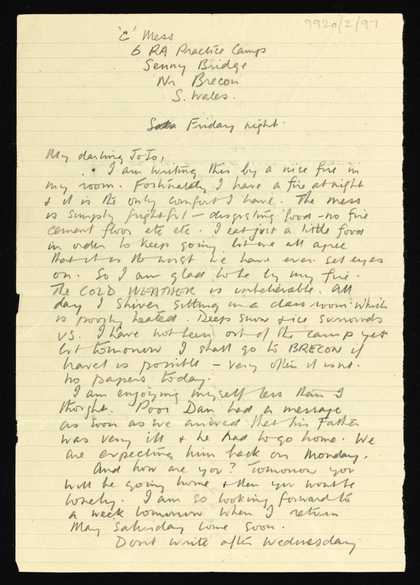 7920/2/97
'C' Mess
6 RA Practice Camps
Senny Bridge
Nr Brecon
S. Wales.
Friday night.
My darling JoJo,
I am writing this by a nice fire in
my room. Fortunately I have a fire at night
& it is the only comfort I have. The mess
is simply frightful – disgusting food – no fire
cement floor etc etc. I eat just a little food
in order to keep going but we all agree
that it is the worst we have ever set eyes
on. So I am glad to be by my fire.
The COLD WEATHER is unbelievable. All
day I shiver sitting in a class room which
is poorly heated. Deep snow & ice surrounds
us. I have not been out of the camp yet
but tomorrow I shall go to BRECON if
travel is possible – very often it is not.
No papers today.
I am enjoying myself less than I
thought. Poor Dan had a message
as soon as we arrived that his Father
was very ill & he had to go home. We
are expecting him back on Monday.
And how are you? Tomorrow you
will be going home & then you wont be
lonely. I am so looking forward to
a week tomorrow when I return
May Saturday come soon.
Dont write after Wednesday